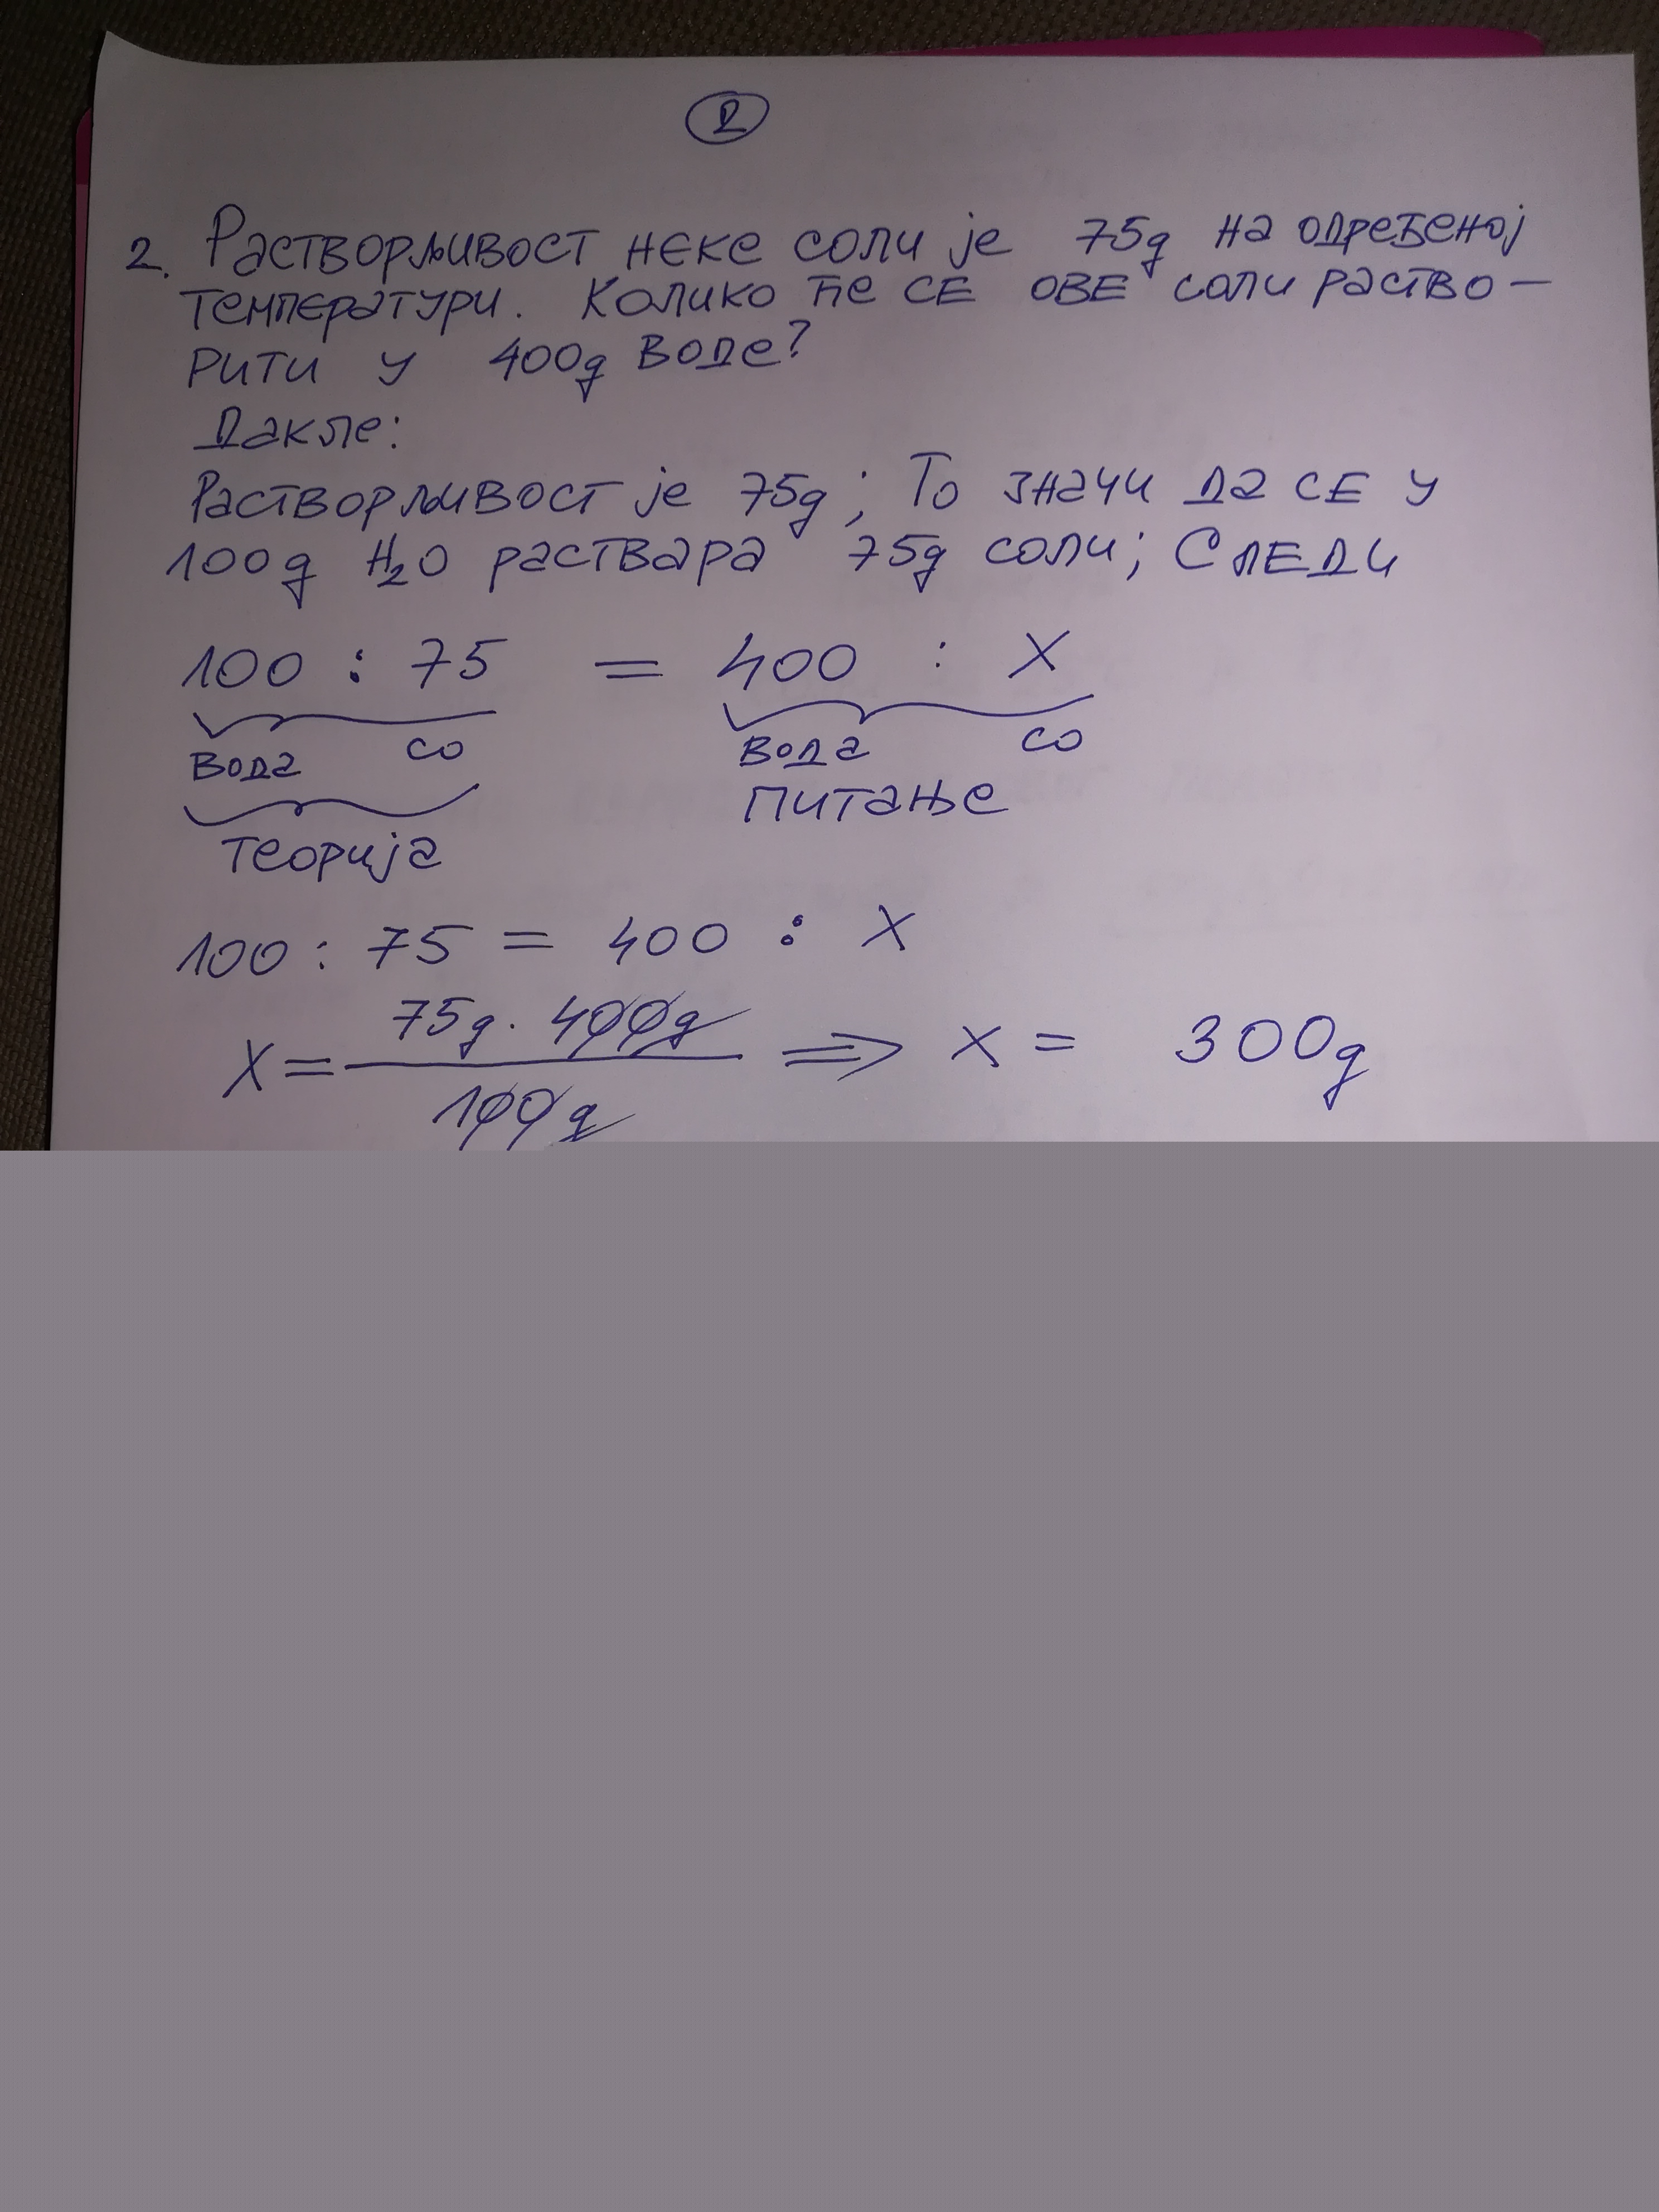 2
2. Растворљивост неке соли је 75g на одређеној
температури. Колико ће се ове соли раство-
рити у 400g воде?
Дакле:
Растворљивост је 75g; То значи да се у
100g H₂O раствара 75g соли; Следи
100 : 75 = 400 : X
вода со вода со
питање
теорија
100 : 75 = 400 : X
75g · 400g
X = ⇒ X = 300g
100g